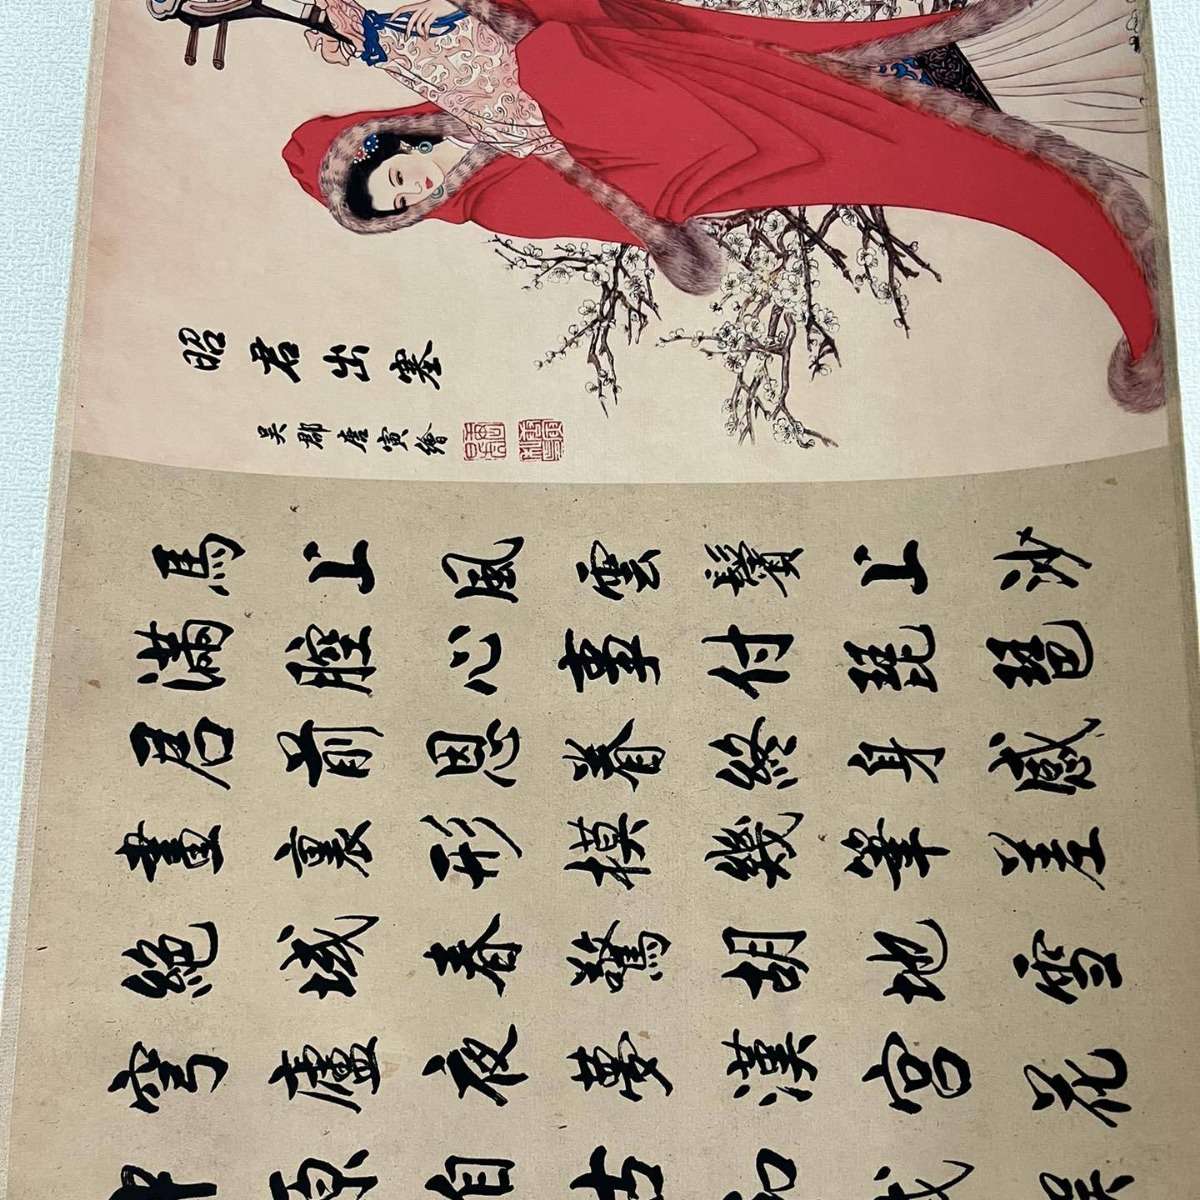 昭君出塞
吳郡唐寅繪
馬上風雲鬢上沙
滿腔心事付琵琶
君前恩眷終身感
畫裏形模幾筆差
絕域春驚胡地雪
穹廬夜夢漢宮花